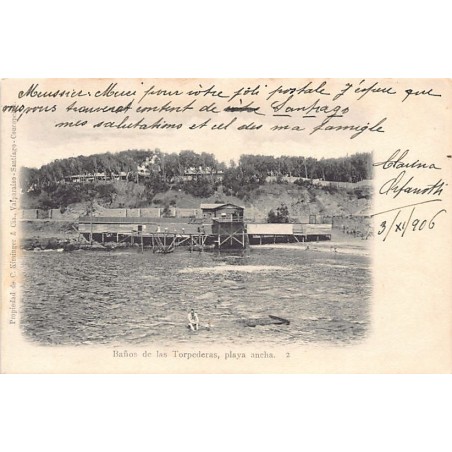 Meussier. Merci pour votre joli postale J'espeu que
vous vous trouverat content de Santiago
mes salutations et cel des ma famigle
Clarina
Orfanotti
3/XI/906
Propiedad de C. Kirsinger & Cia., Valparaiso-Santiago-Concep
Baños de las Torpederas, playa ancha. 2